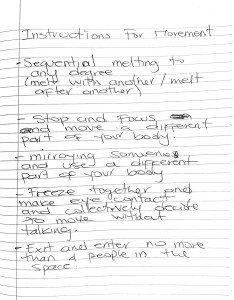 Instructions For Movement
- Sequential melting to
any degree
(melt with another / melt
after another)
- Stop and Focus
and move a different
part of your body
- mirroring someone
and use a different
part of your body
- Freeze together and
make eye contact
and collectively decide
to move without
talking.
- Exit and enter no more
than 4 people in the
space.